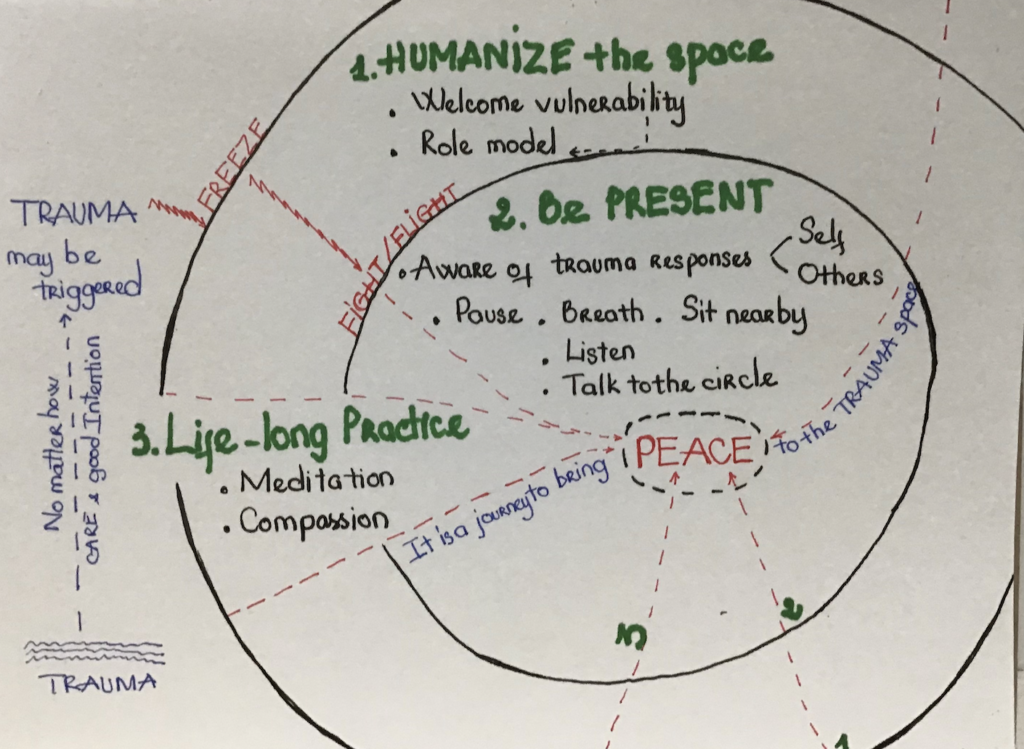 1. HUMANIZE the space
. Welcome vulnerability
. Role model
FREEZE
TRAUMA
may be
triggered
No matter how
CARE & good Intention
TRAUMA
FIGHT/FLIGHT
2. Be PRESENT
. Aware of trauma responses
Self
Others
. Pause . Breath . Sit nearby
. Listen
. Talk to the circle
3. Life-long Practice
. Meditation
. Compassion
It is a journey to bring
PEACE
to the TRAUMA space
3
2
1